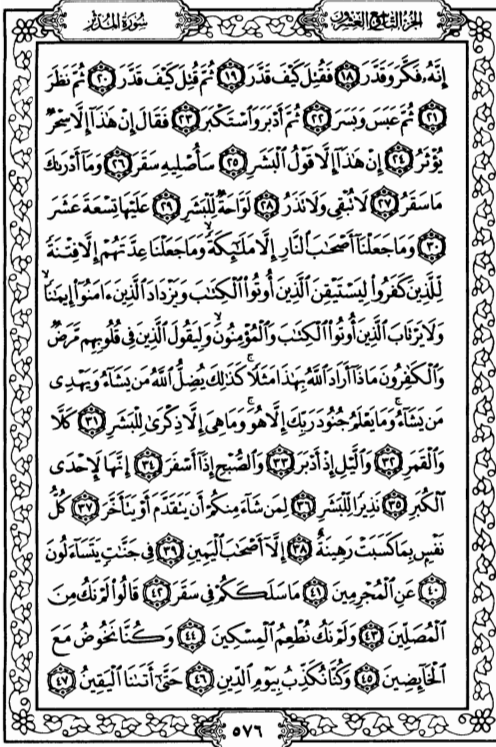 الجزء التاسع والعشرون سُورَةُ المُدَّثِّر
إِنَّهُۥ فَكَّرَ وَقَدَّرَ ١٨ فَقُتِلَ كَيْفَ قَدَّرَ ١٩ ثُمَّ قُتِلَ كَيْفَ قَدَّرَ ٢٠ ثُمَّ نَظَرَ
٢١ ثُمَّ عَبَسَ وَبَسَرَ ٢٢ ثُمَّ أَدْبَرَ وَٱسْتَكْبَرَ ٢٣ فَقَالَ إِنْ هَٰذَآ إِلَّا سِحْرٌ
يُؤْثَرُ ٢٤ إِنْ هَٰذَآ إِلَّا قَوْلُ ٱلْبَشَرِ ٢٥ سَأُصْلِيهِ سَقَرَ ٢٦ وَمَآ أَدْرَىٰكَ
مَا سَقَرُ ٢٧ لَا تُبْقِى وَلَا تَذَرُ ٢٨ لَوَّاحَةٌ لِّلْبَشَرِ ٢٩ عَلَيْهَا تِسْعَةَ عَشَرَ
٣٠ وَمَا جَعَلْنَآ أَصْحَٰبَ ٱلنَّارِ إِلَّا مَلَٰٓئِكَةً ۙ وَمَا جَعَلْنَا عِدَّتَهُمْ إِلَّا فِتْنَةً
لِّلَّذِينَ كَفَرُوا۟ لِيَسْتَيْقِنَ ٱلَّذِينَ أُوتُوا۟ ٱلْكِتَٰبَ وَيَزْدَادَ ٱلَّذِينَ ءَامَنُوٓا۟ إِيمَٰنًا ۙ
وَلَا يَرْتَابَ ٱلَّذِينَ أُوتُوا۟ ٱلْكِتَٰبَ وَٱلْمُؤْمِنُونَ ۙ وَلِيَقُولَ ٱلَّذِينَ فِى قُلُوبِهِم مَّرَضٌ
وَٱلْكَٰفِرُونَ مَاذَآ أَرَادَ ٱللَّهُ بِهَٰذَا مَثَلًا ۚ كَذَٰلِكَ يُضِلُّ ٱللَّهُ مَن يَشَآءُ وَيَهْدِى
مَن يَشَآءُ ۚ وَمَا يَعْلَمُ جُنُودَ رَبِّكَ إِلَّا هُوَ ۚ وَمَا هِىَ إِلَّا ذِكْرَىٰ لِلْبَشَرِ ٣١ كَلَّا
وَٱلْقَمَرِ ٣٢ وَٱلَّيْلِ إِذْ أَدْبَرَ ٣٣ وَٱلصُّبْحِ إِذَآ أَسْفَرَ ٣٤ إِنَّهَا لَإِحْدَى
ٱلْكُبَرِ ٣٥ نَذِيرًا لِّلْبَشَرِ ٣٦ لِمَن شَآءَ مِنكُمْ أَن يَتَقَدَّمَ أَوْ يَتَأَخَّرَ ٣٧ كُلُّ
نَفْسٍۭ بِمَا كَسَبَتْ رَهِينَةٌ ٣٨ إِلَّآ أَصْحَٰبَ ٱلْيَمِينِ ٣٩ فِى جَنَّٰتٍ يَتَسَآءَلُونَ
٤٠ عَنِ ٱلْمُجْرِمِينَ ٤١ مَا سَلَكَكُمْ فِى سَقَرَ ٤٢ قَالُوا۟ لَمْ نَكُ مِنَ
ٱلْمُصَلِّينَ ٤٣ وَلَمْ نَكُ نُطْعِمُ ٱلْمِسْكِينَ ٤٤ وَكُنَّا نَخُوضُ مَعَ
ٱلْخَآئِضِينَ ٤٥ وَكُنَّا نُكَذِّبُ بِيَوْمِ ٱلدِّينِ ٤٦ حَتَّىٰٓ أَتَىٰنَا ٱلْيَقِينُ ٤٧
٥٧٦